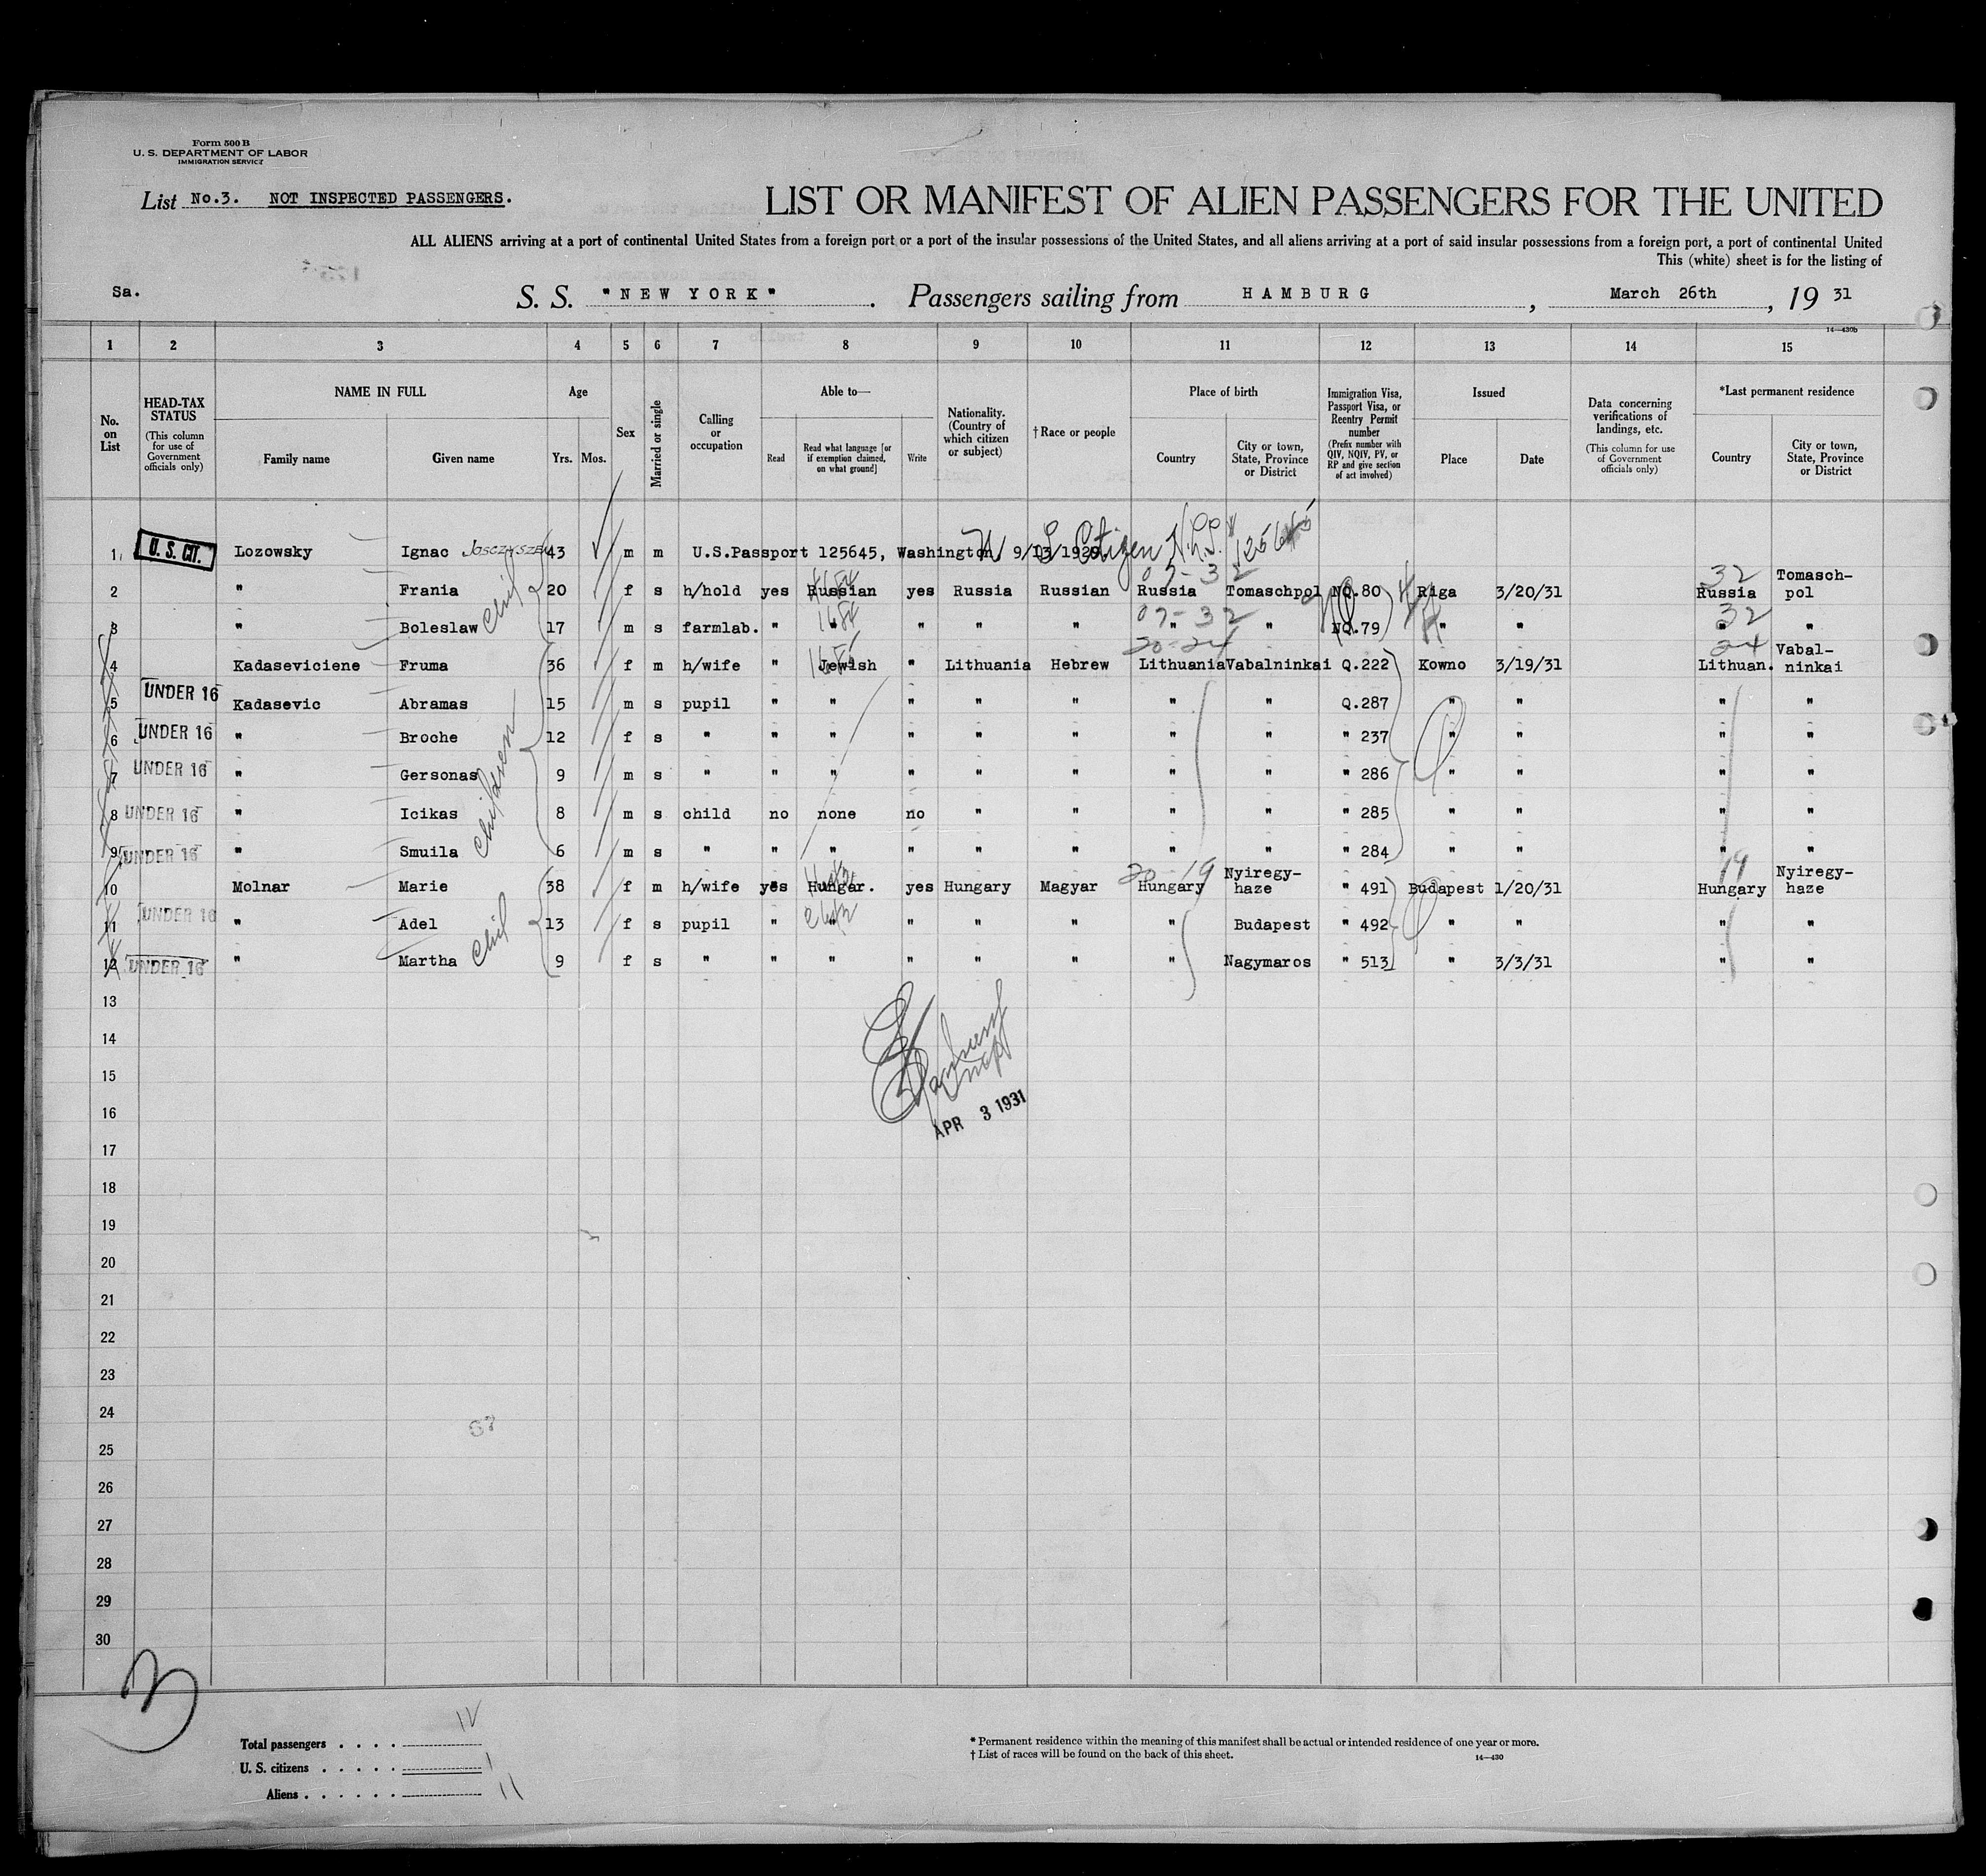 Form 500 B
U. S. DEPARTMENT OF LABOR
IMMIGRATION SERVICE
List No.3. NOT INSPECTED PASSENGERS.
LIST OR MANIFEST OF ALIEN PASSENGERS FOR THE UNITED
ALL ALIENS arriving at a port of continental United States from a foreign port or a port of the insular possessions of the United States, and all aliens arriving at a port of said insular possessions from a foreign port, a port of continental United
This (white) sheet is for the listing of
Sa. S. S. "NEW YORK" . Passengers sailing from HAMBURG , March 26th , 19 31
14—430b
1 2 3 4 5 6 7 8 9 10 11 12 13 14 15
No. on List
HEAD-TAX STATUS (This column for use of Government officials only)
NAME IN FULL Family name Given name
Age Yrs. Mos.
Sex
Married or single
Calling or occupation
Able to— Read Read what language [or if exemption claimed, on what ground] Write
Nationality. (Country of which citizen or subject)
†Race or people
Place of birth Country City or town, State, Province or District
Immigration Visa, Passport Visa, or Reentry Permit number (Prefix number with QIV, NQIV, PV, or RP and give section of act involved)
Issued Place Date
Data concerning verifications of landings, etc. (This column for use of Government officials only)
*Last permanent residence Country City or town, State, Province or District
1 U. S. CIT. Lozowsky Ignac 43 m m U.S.Passport 125645, Washington 9/13/1929. U S Citizen 125645
07-32 32
2 " Frania 20 f s h/hold yes Russian yes Russia Russian Russia Tomaschpol NQ.80 Riga 3/20/31 Russia Tomasch-pol
07-32 32
3 " Boleslaw 17 m s farmlab. " " " " " " " NQ.79 " " " "
20-24 24
4 Kadaseviciene Fruma 36 f m h/wife " Jewish " Lithuania Hebrew Lithuania Vabalninkai Q.222 Kowno 3/19/31 Lithuan. Vabal-ninkai
5 UNDER 16 Kadasevic Abramas 15 m s pupil " " " " " " " Q.287 " " " "
6 UNDER 16 " Broche 12 f s " " " " " " " " " 237 " " " "
7 UNDER 16 " Gersonas 9 m s " " " " " " " " " 286 " " " "
children
8 UNDER 16 " Icikas 8 m s child no none no " " " " " 285 " " " "
9 UNDER 16 " Smuila 6 m s " " " " " " " " " 284 " " " "
20-19 19
10 Molnar Marie 38 f m h/wife yes Hungar. yes Hungary Magyar Hungary Nyiregy-haze " 491 Budapest 1/20/31 Hungary Nyiregy-haze
11 UNDER 16 " Adel 13 f s pupil " " " " " " Budapest " 492 " " " "
12 UNDER 16 " Martha 9 f s " " " " " " " Nagymaros " 513 " 3/3/31 " "
13
14
15
16
APR 3 1931
17
18
19
20
21
22
23
24
25
26
27
28
29
30
3
Total passengers . . . . 12
U. S. citizens . . . . . 1
Aliens . . . . . . 11
* Permanent residence within the meaning of this manifest shall be actual or intended residence of one year or more.
† List of races will be found on the back of this sheet. 14—430